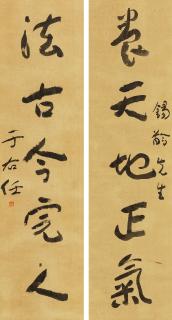 養天地正氣
錫齡先生
法古今完人
于右任